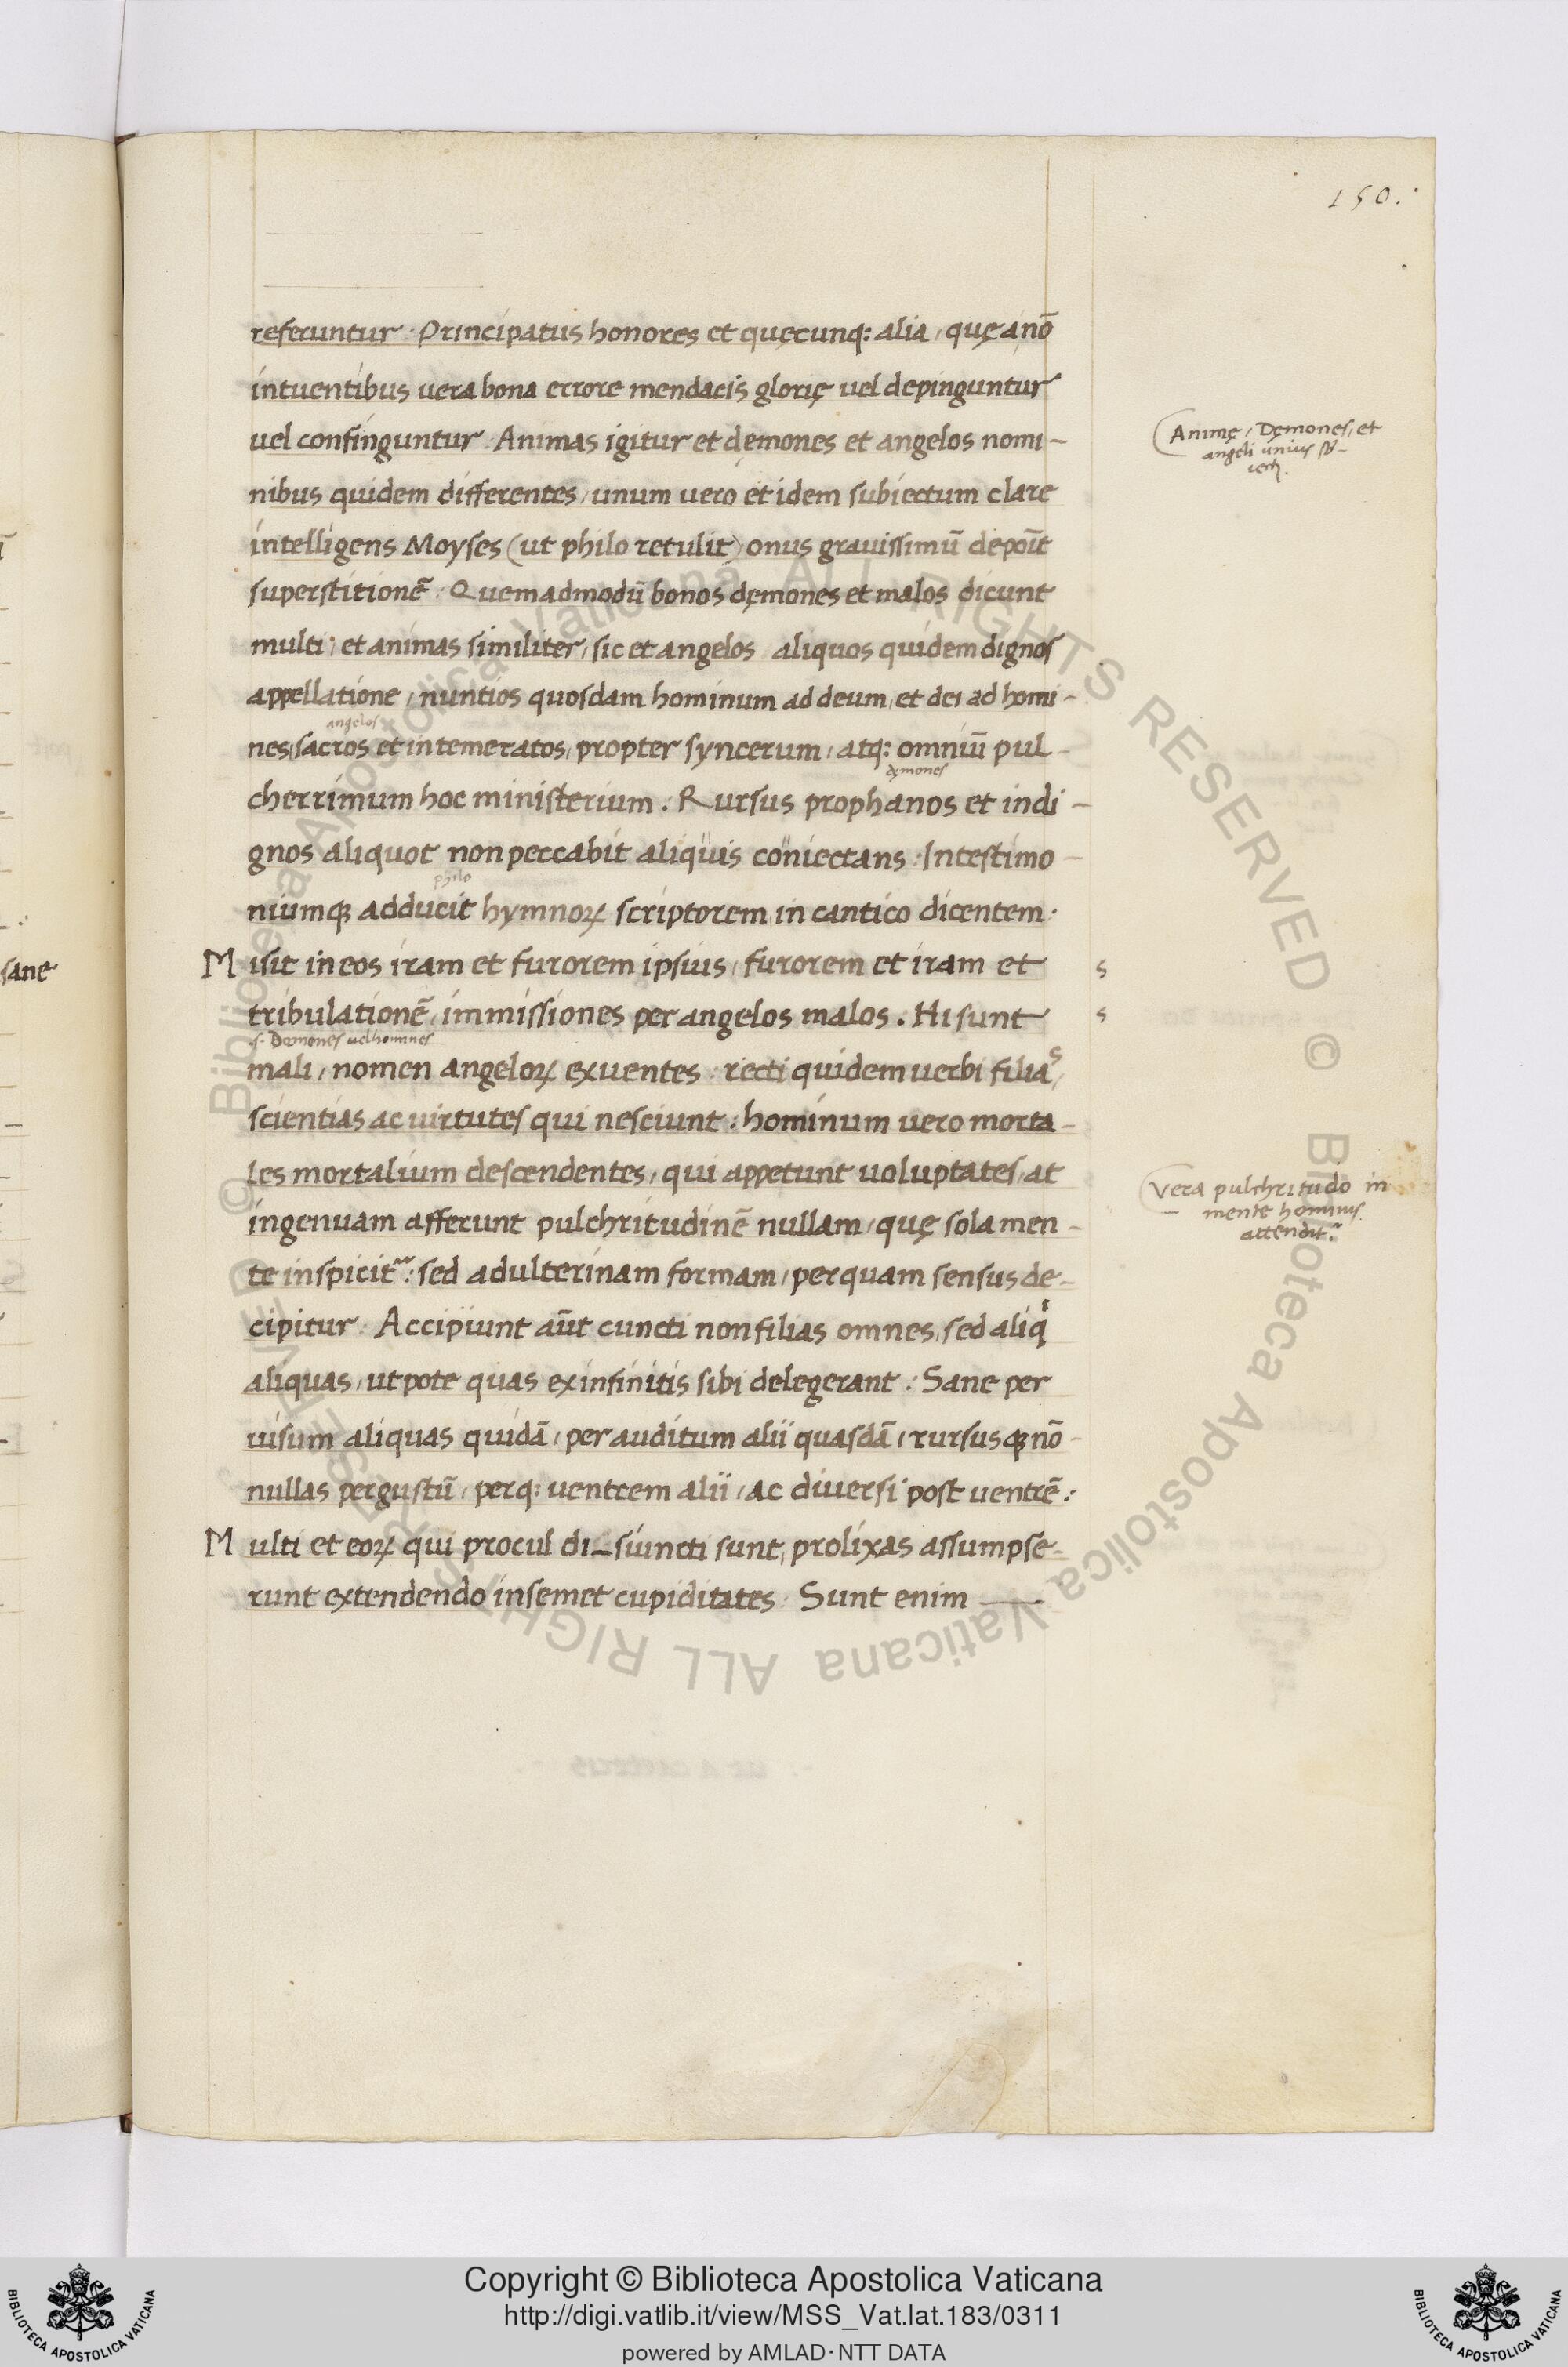 150.
referuntur. Principatus honores et quęcunq: alia, quę a nō
intuentibus uera bona errore mendacis glorię uel depinguntur
uel confinguntur. Animas igitur et dęmones et angelos nomi-
nibus quidem differentes, unum uero et idem subiectum clare
intelligens Moyses (ut philo retulit) onus grauissimū depoīt
superstitionē. Quemadmodū bonos dęmones et malos dicunt
multi: et animas similiter, sic et angelos aliquos quidem dignos
appellatione, nuntios quosdam hominum ad deum, et dei ad homi-
angelos
nes, sacros et intemeratos, propter syncerum, atq: omniū pul-
dęmones
cherrimum hoc ministerium. Rursus prophanos et indi-
gnos aliquot non peccabit aliquis coniectans. In testimo-
philo
niumqꝫ adducit hymnoꝝ scriptorem, in cantico dicentem.
Misit in eos iram et furorem ipsius, furorem et iram et
s
tribulationē, immissiones per angelos malos. Hi sunt
s
s. Dęmones uel homines
mali, nomen angeloꝝ exuentes: recti quidem uerbi filias,
scientias ac uirtutes qui nesciunt: hominum uero morta-
les mortalium descendentes, qui appetunt uoluptates, at
ingenuam afferunt pulchritudinē nullam, quę sola men-
te inspicit.r: sed adulterinam formam, per quam sensus de-
cipitur. Accipiunt aūt cuncti non filias omnes, sed aliqͥ
aliquas, utpote quas ex infinitis sibi delegerant. Sane per
uisum aliquas quidā, per auditum alii quasdā, rursusqꝫ nō-
nullas per gustū, perq: uentrem alii, ac diuersi post uentrē:
Multi et eoꝝ qui procul di_siuncti sunt, prolixas assumpse-
runt extendendo insemet cupiditates. Sunt enim
Animę, Dęmones, et
angeli unius
Vera pulchritudo in
mente hominis
attendit.r
sane
Copyright © Biblioteca Apostolica Vaticana
http://digi.vatlib.it/view/MSS_Vat.lat.183/0311
powered by AMLAD·NTT DATA
BIBLIOTECA APOSTOLICA VATICANA
BIBLIOTECA APOSTOLICA VATICANA